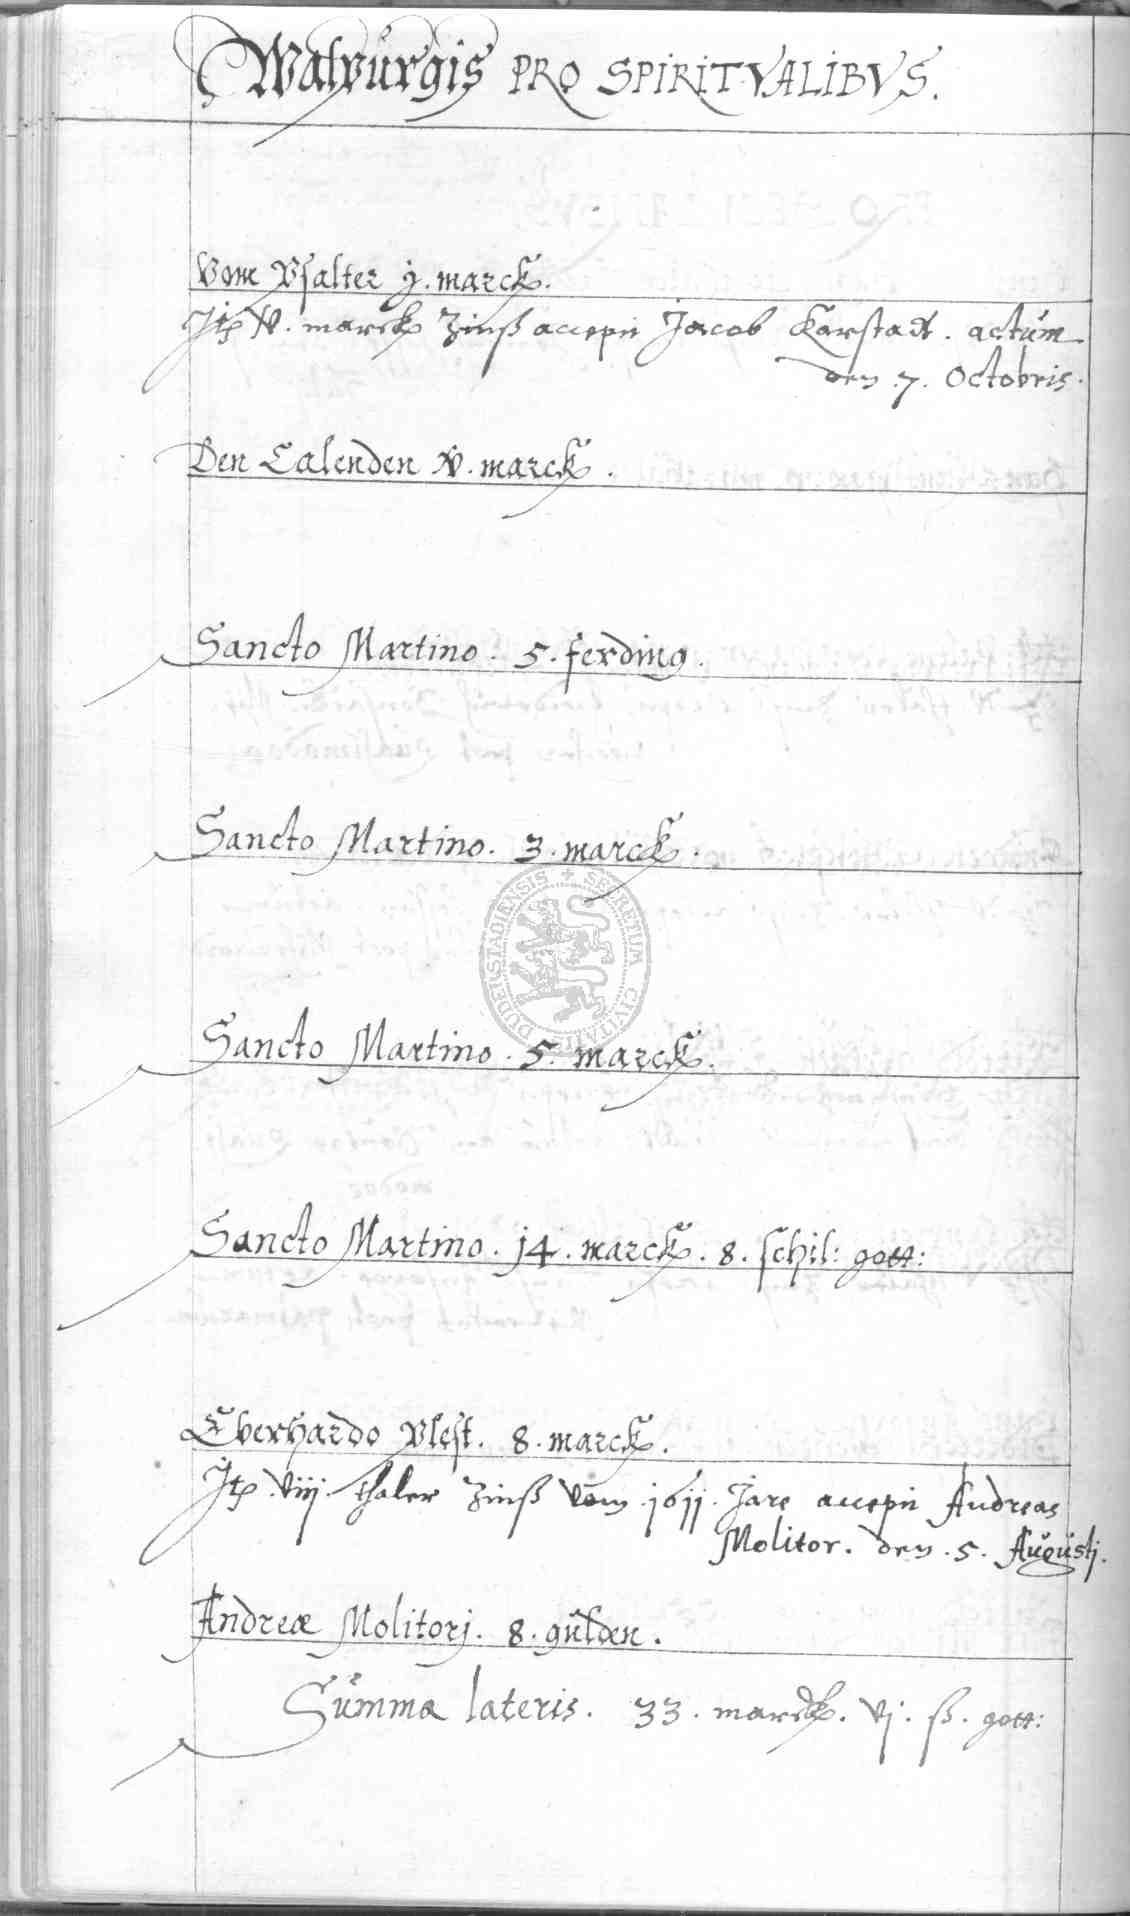 Walpurgis PRO SPIRITVALIBVS.
Vom Psalter j. marck.
Jtem V. marck Zinß accepit Jacob Karstadt. actum
den .7. Octobris.
Den Calenden V. marck.
Sancto Martino. 5. ferding.
Sancto Martino. 3. marck.
DUDERSTADIENSIS + SECRETUM CIVITATIS
Sancto Martino. 5. marck.
Sancto Martino. 14. marck. 8. schil: gott:
Eberhardo Vlest. 8. marck.
Jtem .viij. thaler Zinß vom .1611. Jare accepit Andreas
Molitor. den .5. Augustj.
Andreæ Molitorj. 8. gulden.
Summa lateris. 33. marck. vj. ß. gott: